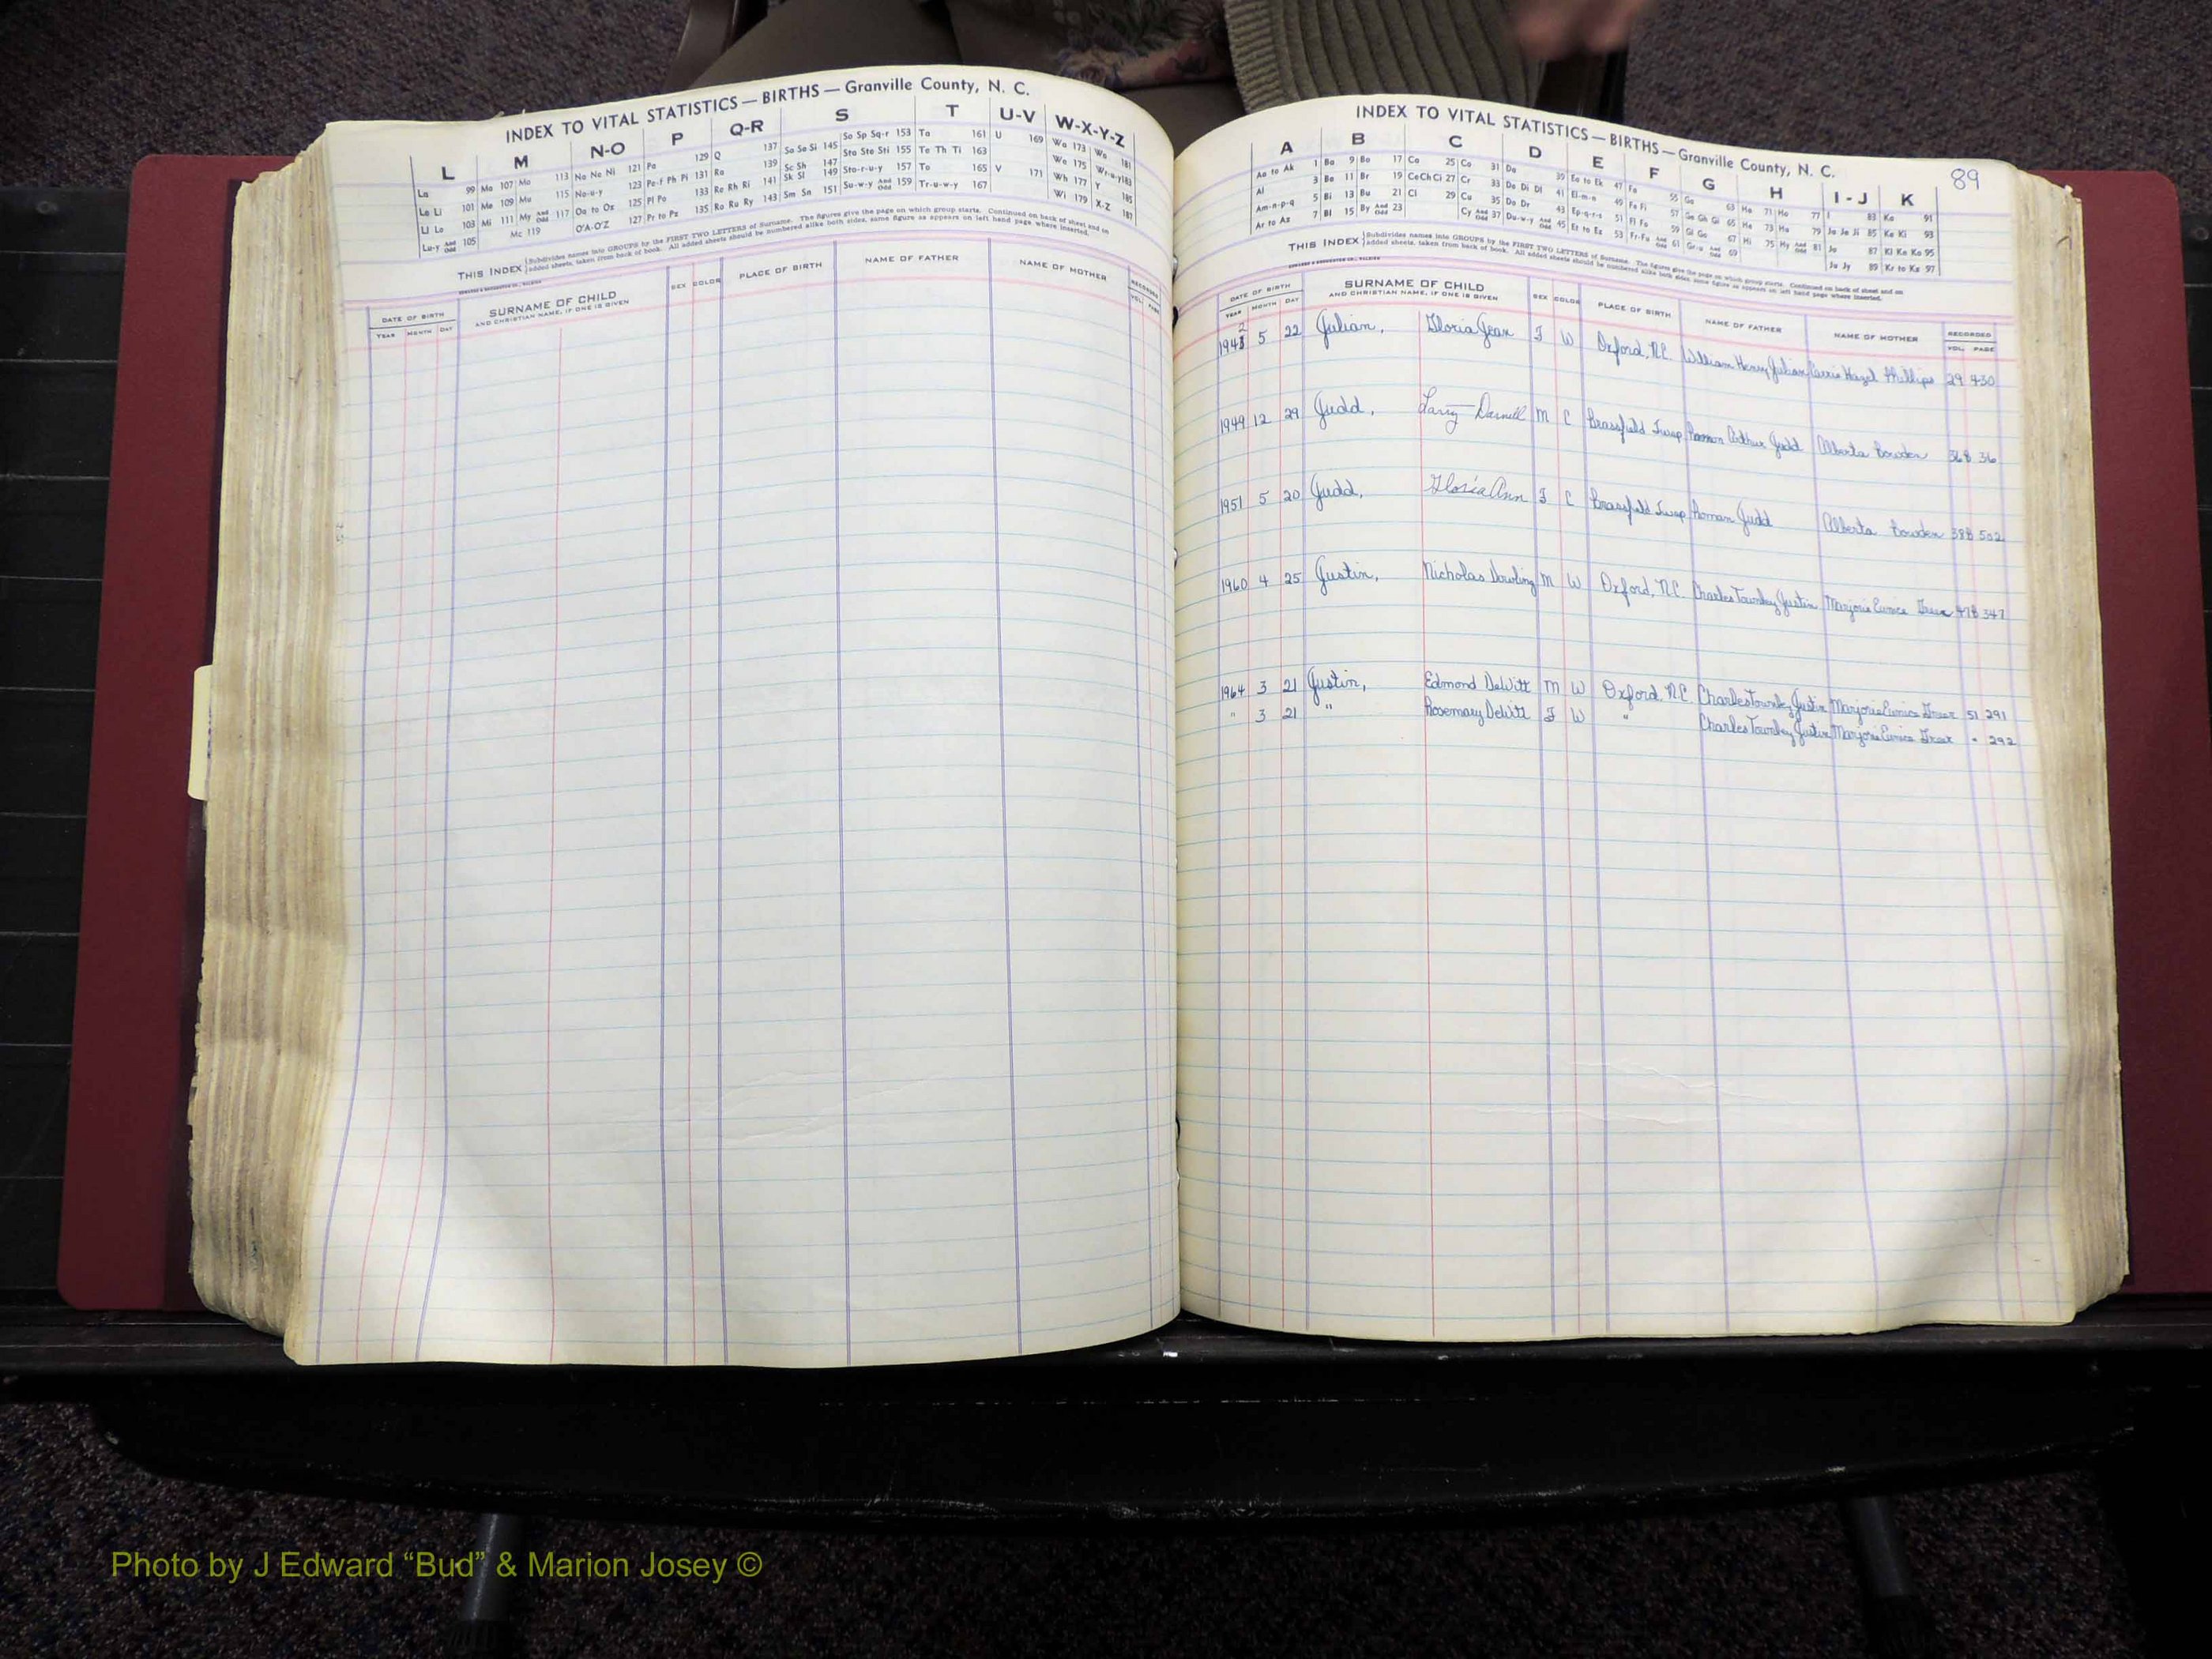 INDEX TO VITAL STATISTICS — BIRTHS — Granville County, N. C.
L M N-O P Q-R S T U-V W-X-Y-Z
La 99 Ma 107 Mo 113 Na Ne Ni 121 Pa 129 Q 137 Sa Se Si 145 So Sp Sq-r 153 Ta 161 U 169 Wa 173 Wo 181
Le Li 101 Me 109 Mu 115 No-u-y 123 Pe-f Ph Pi 131 Ra 139 Sc Sh 147 Sta Ste Sti 155 Te Th Ti 163 We 175 Wr-u-y 183
Ll Lo 103 Mi 111 My And Odd 117 Oa to Oz 125 Pl Po 133 Re Rh Ri 141 Sk Sl 149 Sto-r-u-y 157 To 165 V 171 Wh 177 Y 185
Lu-y And Odd 105 Mc 119 O'A-O'Z 127 Pr to Pz 135 Ro Ru Ry 143 Sm Sn 151 Su-w-y And Odd 159 Tr-u-w-y 167 Wi 179 X-Z 187
THIS INDEX Subdivides names into GROUPS by the FIRST TWO LETTERS of Surname. The figures give the page on which group starts. Continued on back of sheet and on
added sheets, taken from back of book. All added sheets should be numbered alike both sides, same figure as appears on left hand page where inserted.
DATE OF BIRTH SURNAME OF CHILD SEX COLOR PLACE OF BIRTH NAME OF FATHER NAME OF MOTHER RECORDED
YEAR MONTH DAY AND CHRISTIAN NAME, IF ONE IS GIVEN VOL. PAGE
INDEX TO VITAL STATISTICS — BIRTHS — Granville County, N. C.
89
A B C D E F G H I - J K
Aa to Ak 1 Ba 9 Bo 17 Ca 25 Co 31 Da 39 Ea to Ek 47 Fa 55 Ga 63 Ha 71 Ho 77 I 83 Ka 91
Al 3 Be 11 Br 19 Ce Ch Ci 27 Cr 33 De Di Dl 41 El-m-n 49 Fe Fi 57 Ge Gh Gi 65 He 73 Hu 79 Ja Je Ji 85 Ke Ki 93
Am-n-p-q 5 Bi 13 Bu 21 Cl 29 Cu 35 Do Dr 43 Ep-q-r-s 51 Fl Fo 59 Gl Go 67 Hi 75 Hy And Odd 81 Jo 87 Kl Kn Ko 95
Ar to Az 7 Bl 15 By And Odd 23 Cy And Odd 37 Du-w-y And Odd 45 Et to Ez 53 Fr-Fu And Odd 61 Gr-u And Odd 69 Ju Jy 89 Kr to Kz 97
THIS INDEX Subdivides names into GROUPS by the FIRST TWO LETTERS of Surname. The figures give the page on which group starts. Continued on back of sheet and on
added sheets, taken from back of book. All added sheets should be numbered alike both sides, same figure as appears on left hand page where inserted.
DATE OF BIRTH SURNAME OF CHILD SEX COLOR PLACE OF BIRTH NAME OF FATHER NAME OF MOTHER RECORDED
YEAR MONTH DAY AND CHRISTIAN NAME, IF ONE IS GIVEN VOL. PAGE
1942 5 22 Julian, Gloria Jean F W Oxford, N.C. William Henry Julian Carrie Hazel Phillips 29 430
1949 12 29 Judd, Larry Darnell M C Brassfield Twsp Roman Arthur Judd Alberta Bowden 36B 36
1951 5 20 Judd, Gloria Ann F C Brassfield Twsp Roman Judd Alberta Bowden 38B 502
1960 4 25 Justin, Nicholas Dowling M W Oxford, N.C. Charles Townley Justin Marjorie Eunice Greer 47B 347
1964 3 21 Justin, Edmond DeWitt M W Oxford, N.C. Charles Townley Justin Marjorie Eunice Greer 51 291
" 3 21 " Rosemary DeWitt F W " Charles Townley Justin Marjorie Eunice Greer " 292
Photo by J Edward “Bud” & Marion Josey ©